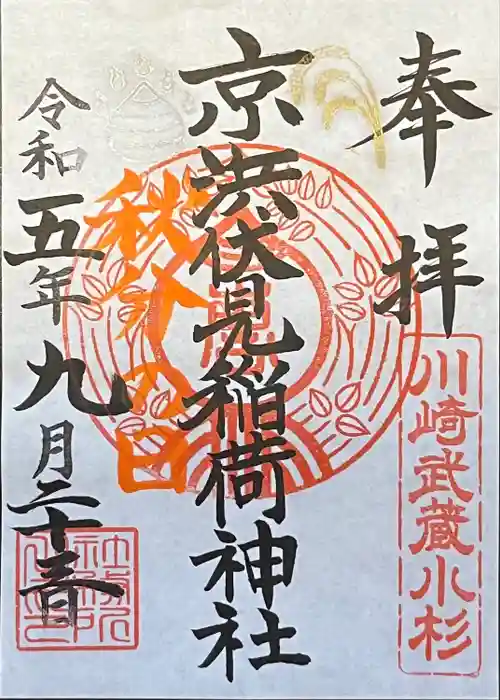 奉拝
川崎武蔵小杉
京濱伏見稲荷神社
秋分の日
令和五年九月二十三日